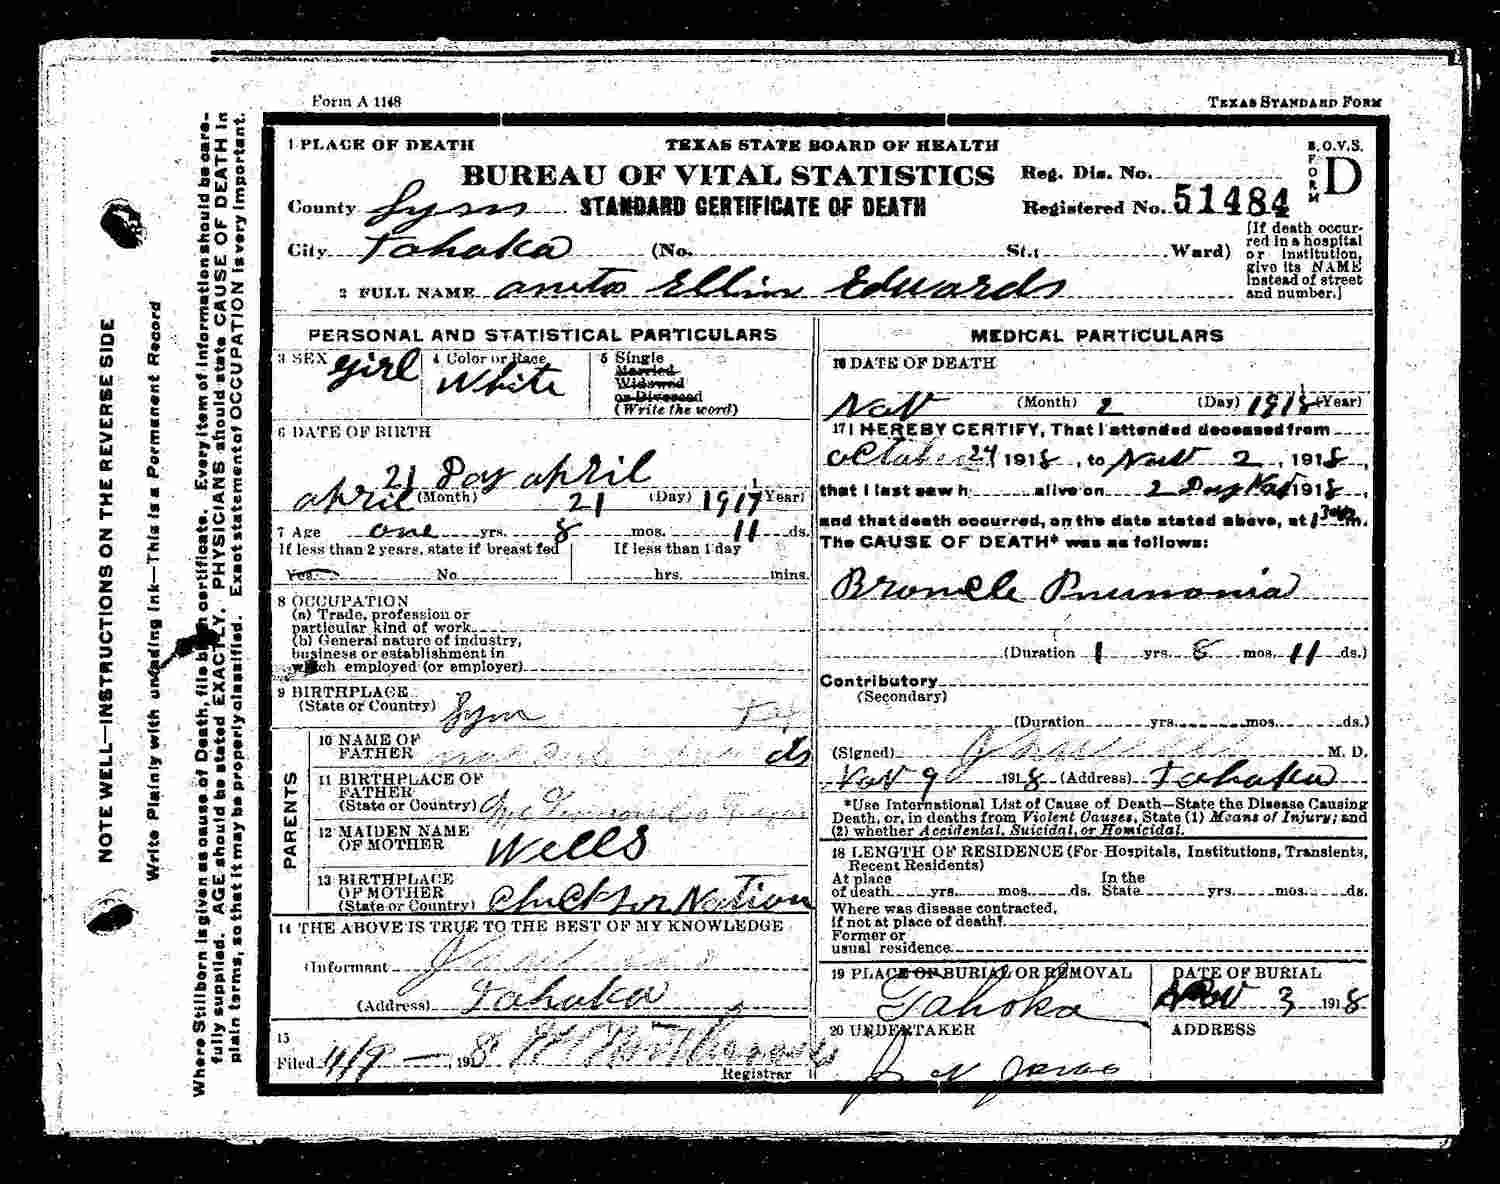 Form A 1148
TEXAS STANDARD FORM
1 PLACE OF DEATH
TEXAS STATE BOARD OF HEALTH
BUREAU OF VITAL STATISTICS
STANDARD CERTIFICATE OF DEATH
Reg. Dis. No.
Registered No. 51484
B.O.V.S.
FORM D
County Lynn
City Tahoka (No. St.; Ward)
[If death occur-
red in a hospital
or institution,
give its NAME
instead of street
and number.]
2 FULL NAME Edwards
PERSONAL AND STATISTICAL PARTICULARS
3 SEX girl
4 Color or Race White
5 Single
Married
Widowed
or Divorced
(Write the word)
6 DATE OF BIRTH
21 Day april
april (Month) 21 (Day) 1917 (Year)
7 Age one yrs. 8 mos. 11 ds.
If less than 2 years, state if breast fed
Yes No
If less than 1 day
hrs. mins.
8 OCCUPATION
(a) Trade, profession or
particular kind of work
(b) General nature of industry,
business or establishment in
which employed (or employer)
9 BIRTHPLACE
(State or Country) Lynn Tex
PARENTS
10 NAME OF
FATHER
11 BIRTHPLACE OF
FATHER
(State or Country)
12 MAIDEN NAME
OF MOTHER Wells
13 BIRTHPLACE
OF MOTHER
(State or Country) Nation
14 THE ABOVE IS TRUE TO THE BEST OF MY KNOWLEDGE
(Informant
(Address) Tahoka
15
Filed 11/9 — , 1918
Registrar
MEDICAL PARTICULARS
16 DATE OF DEATH
Nov (Month) 2 (Day) 1918 (Year)
17 I HEREBY CERTIFY, That I attended deceased from
24 1918, to Nov 2, 1918,
that I last saw h alive on 2 Day Nov 1918,
and that death occurred, on the date stated above, at m.
The CAUSE OF DEATH* was as follows:
Broncle Pnumonia
(Duration 1 yrs. 8 mos. 11 ds.)
Contributory
(Secondary)
(Duration yrs. mos. ds.)
(Signed) M. D.
Nov 9 1918 (Address) Tahoka
*Use International List of Cause of Death—State the Disease Causing
Death, or, in deaths from Violent Causes, State (1) Means of Injury; and
(2) whether Accidental, Suicidal, or Homicidal.
18 LENGTH OF RESIDENCE (For Hospitals, Institutions, Transients,
Recent Residents)
At place
of death yrs. mos. ds.
In the
State yrs. mos. ds.
Where was disease contracted,
if not at place of death?
Former or
usual residence
19 PLACE OF BURIAL OR REMOVAL
Tahoka
DATE OF BURIAL
Nov 3 1918
20 UNDERTAKER
ADDRESS
NOTE WELL—INSTRUCTIONS ON THE REVERSE SIDE
Write Plainly with unfading Ink—This is a Permanent Record
Where Stillborn is given as cause of Death, file birth certificate. Every item of information should be care-
fully supplied. AGE should be stated EXACTLY. PHYSICIANS should state CAUSE OF DEATH in
plain terms, so that it may be properly classified. Exact statement of OCCUPATION is very important.